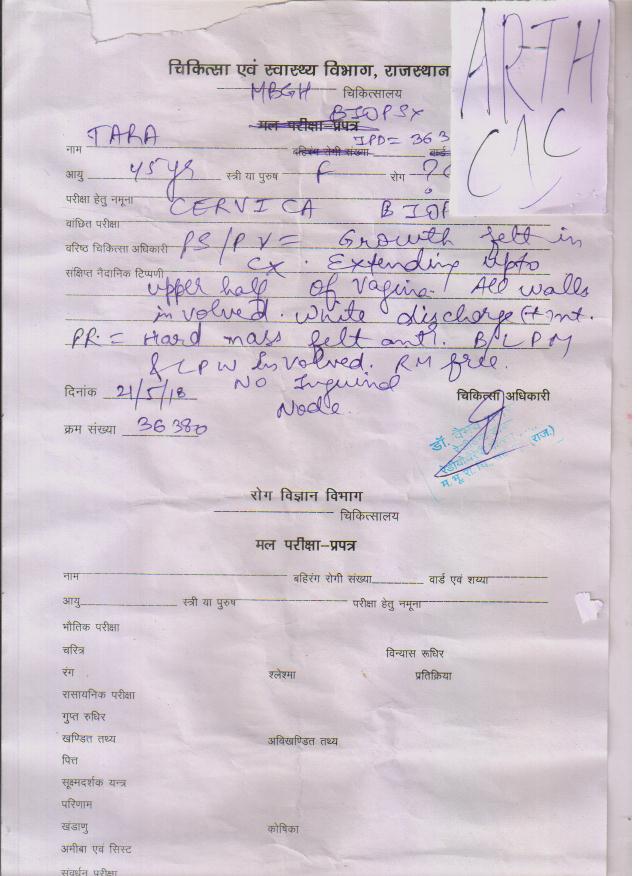 ARTH
CAC
चिकित्सा एवं स्वास्थ्य विभाग, राजस्थान
MBGH चिकित्सालय
BIOPSY
मल परीक्षा-प्रपत्र
IPD= 363
नाम TARA बहिरंग रोगी संख्या वार्ड
आयु 45 yr स्त्री या पुरुष F रोग ?
परीक्षा हेतु नमूना CERVICA BIOP
वांछित परीक्षा
वरिष्ठ चिकित्सा अधिकारी PS/PV = Growth felt in
संक्षिप्त नैदानिक टिप्पणी CX. Extending upto
upper half of vagina. All walls
involved. White discharge (+)nt.
PR = Hard mass felt ant. B/L PM
& LPW Involved. RM free.
दिनांक 21/5/18 NO Inguinal
Node.
चिकित्सा अधिकारी
क्रम संख्या 36380
डॉ.
(राज.)
रोग विज्ञान विभाग
चिकित्सालय
मल परीक्षा-प्रपत्र
नाम बहिरंग रोगी संख्या वार्ड एवं शय्या
आयु स्त्री या पुरुष परीक्षा हेतु नमूना
भौतिक परीक्षा
चरित्र विन्यास रूधिर
रंग श्लेश्मा प्रतिक्रिया
रासायनिक परीक्षा
गुप्त रुधिर
खण्डित तथ्य अविखण्डित तथ्य
पित्त
सूक्ष्मदर्शक यन्त्र
परिणाम
खंडाणु कोषिका
अमीबा एवं सिस्ट
संवर्धन परीक्षा